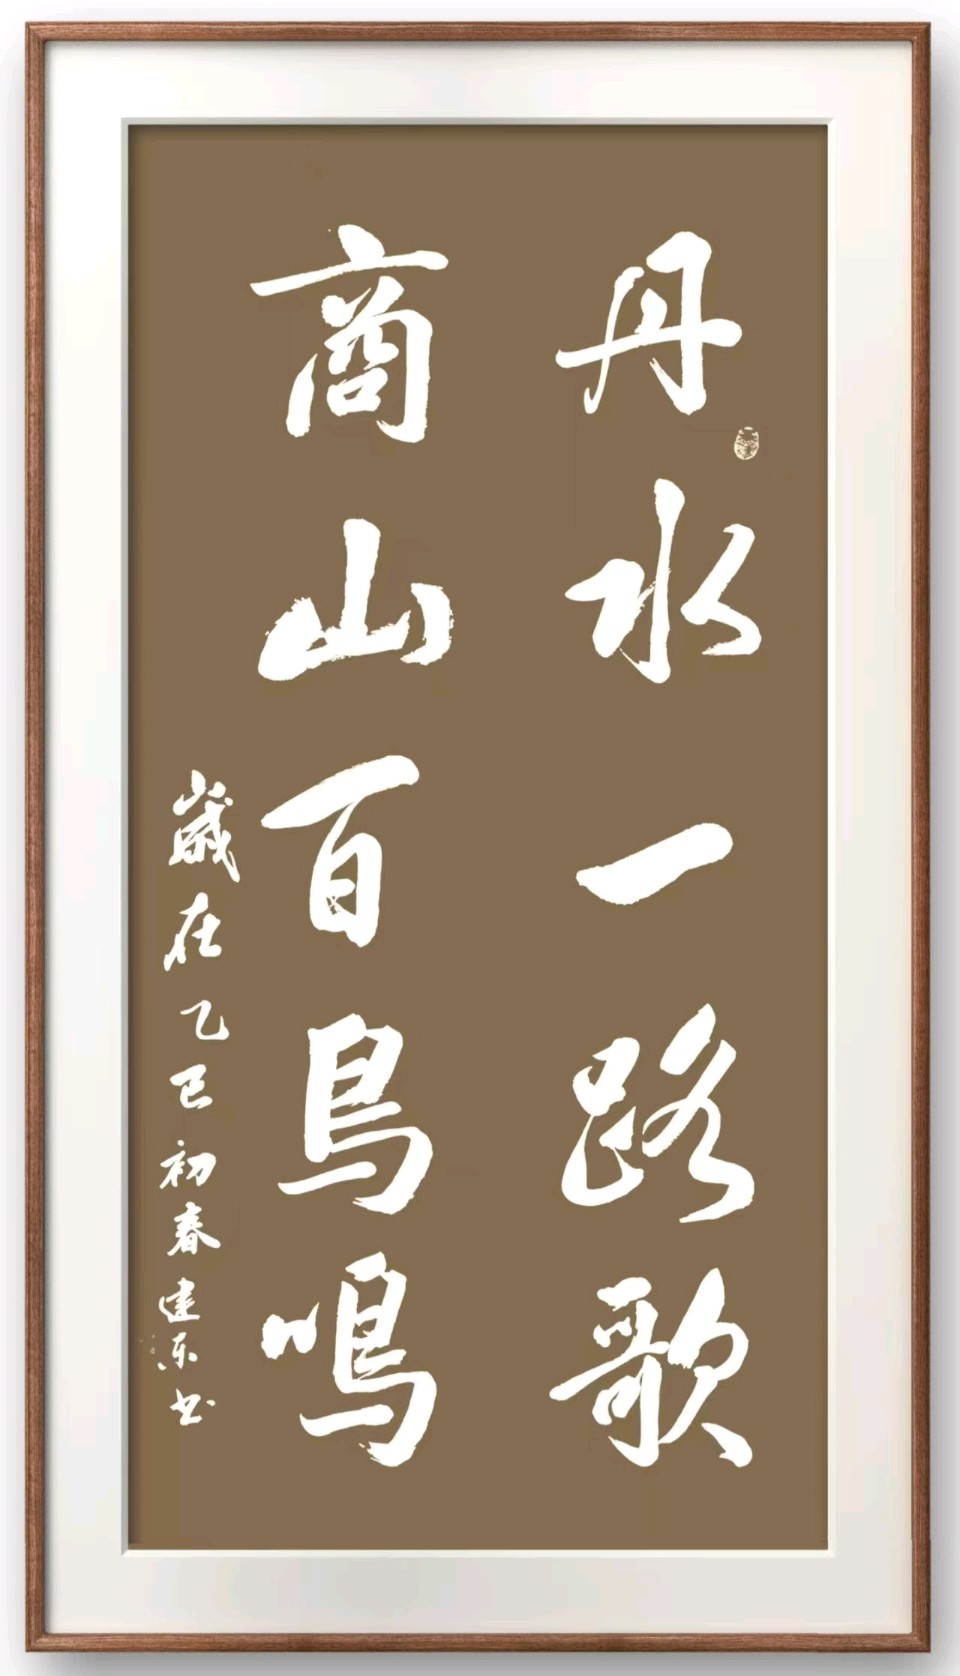 丹水一路歌
商山百鳥鳴
歲在乙巳初春建东书